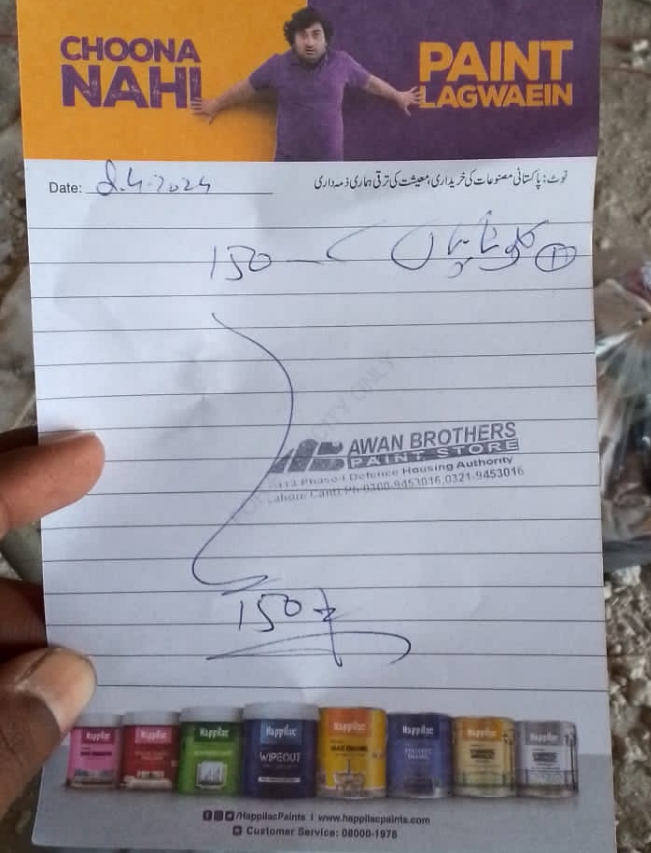 CHOONA NAHI
PAINT LAGWAEIN
Date: 2.4.2024
نوٹ: پاکستانی مصنوعات کی خریداری، معیشت کی ترقی ہماری ذمہ داری
① 150
AB AWAN BROTHERS
PAINT STORE
Phase-I Defence Housing Authority
Lahore Cantt. Ph: 0300-9453016, 0321-9453016
150
Happilac Happilac Happilac Happilac Happilac Happilac Happilac Happilac
WIPEOUT
/HappilacPaints | www.happilacpaints.com
Customer Service: 08000-1978